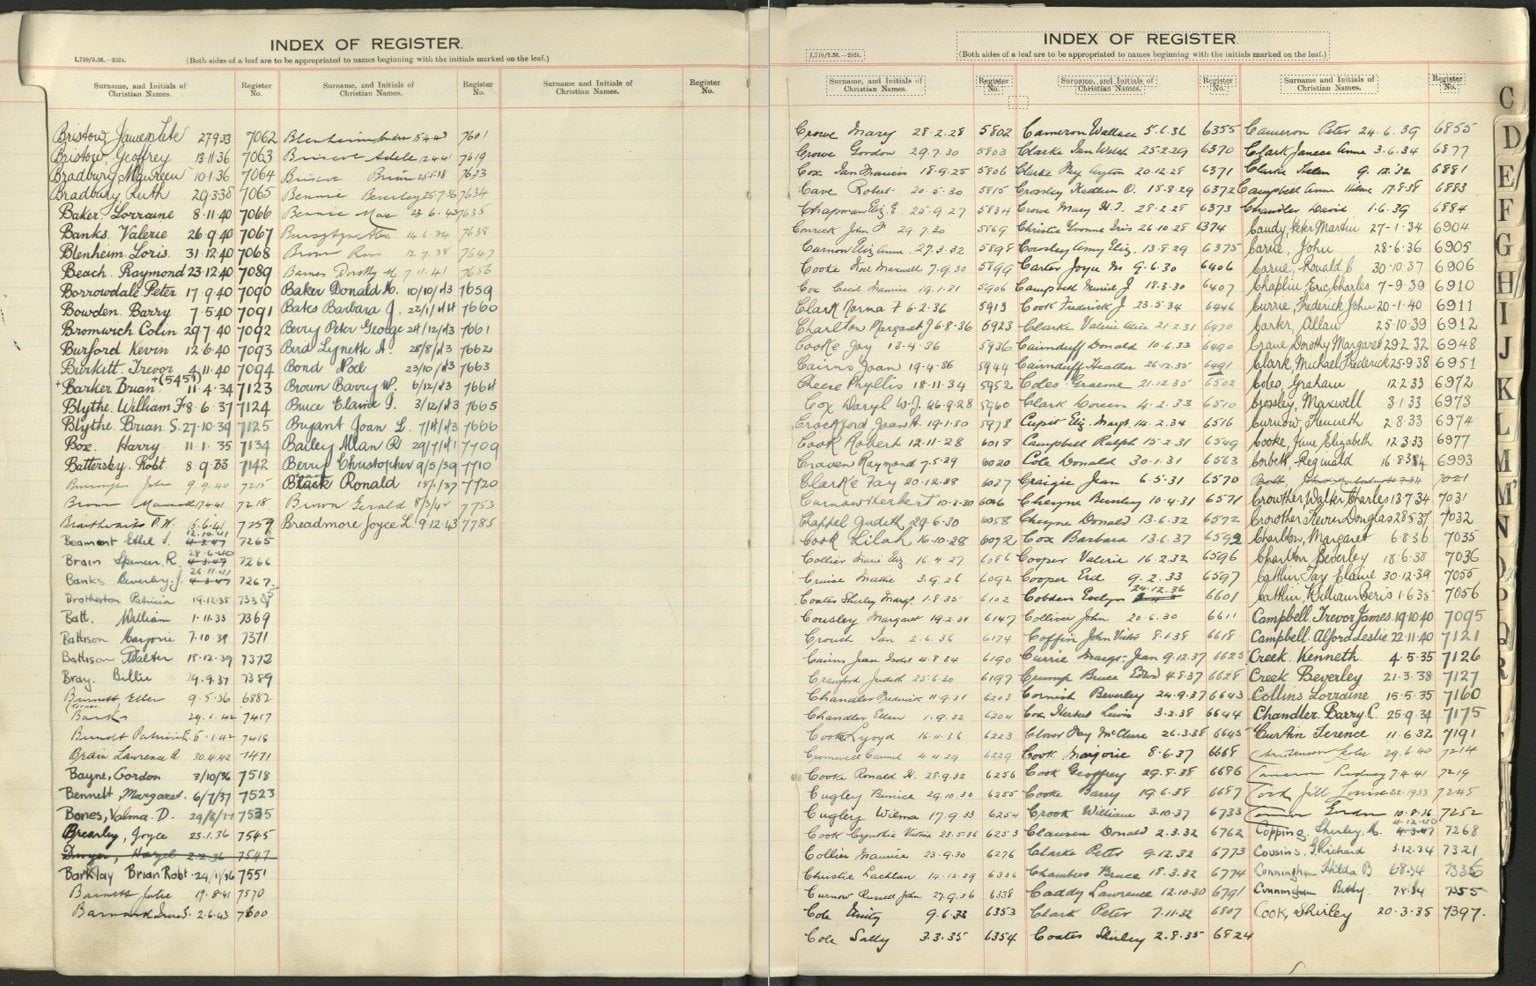 INDEX OF REGISTER.
1,710/3.36.—2524.
(Both sides of a leaf are to be appropriated to names beginning with the initials marked on the leaf.)
Surname, and Initials of Christian Names. Register No. Surname, and Initials of Christian Names. Register No. Surname, and Initials of Christian Names. Register No.
Bristow 27.9.33 7062
Bristow, Geoffrey 13.11.36 7063
Bradbury Maureen 10.1.36 7064
Bradbury, Ruth 29.3.38 7065
Baker, Lorraine 8.11.40 7066
Banks. Valerie 26.9.40 7067
Blenheim Loris. 31.12.40 7068
Beach. Raymond 23.12.40 7089
Borrowdale Peter 17.9.40 7090
Bowden. Barry 7.5.40 7091
Bromwich Colin 29.7.40 7092
Burford Kevin 12.6.40 7093
Burkitt Trevor 4.11.40 7094
+ Barker Brian + (5451) 11.4.34 7123
Blythe. William F 8.6.37 7124
Blythe. Brian. S. 27.10.39 7125
Box. Harry. 11.1.35 7134
Battersby. Robt 8.9.33 7142
John 9.9.40 7215
Brown 7218
Braithwaite P.W. 15.6.41 7259
Beamont Ethel J. 12.10.41 7265
Brain Spencer. R. 28.6.40 7266
Banks Beverley. J. 7267
Brotherton Patricia 19.12.35
Batt. William 1.11.33 7369
Battison Marjorie 7.10.38 7371
Battison Walter 18.12.39 7372
Bray. Billie 29.9.37 7389
Burnett Ellen 9.5.36 6882
Banks 29.1.42 7417
Patricia E. 5.1.42 7418
Brain Lawrence A 30.4.42 7471
Bayne, Gordon 3/10/36 7518
Bennett, Margaret. 6/7/37 7523
Bones, Valma. D. 7535
Brearley, Joyce 23.1.36 7545
Dwyer, Hazel 2.2.36 7547
Barklay Brian Robt. 24/11/36 7551
Barnett Julie 19.8.41 7570
Barnard 2.6.43 7600
Blenheim 5.4.43 7601
Briscoe Adele 7619
Briscoe Brian 25.5.38 7633
Bennie Beverley 25.7.36 7634
Bennie Mae 23.6.43 7635
7638
Brown Ron 12.7.38 7647
Barnes Dorothy M 7.11.41 7656
Baker Donald K. 10/10/43 7659
Bates Barbara J. 22/1/44 7660
Berry Peter George 24/12/43 7661
Bird Lynette A. 28/8/43 7662
Bond Noel 23/10/43 7663
Brown Barry W. 6/12/43 7664
Bruce Elaine J. 3/12/43 7665
Bryant Joan L. 7666
Bailey Allan R 29/7/41 7709
Berry Christopher 9/5/39 7710
Black Ronald 15/1/37 7720
Brown Gerald 8/3/42 7753
Breadmore Joyce L. 9.12.43 7785
INDEX OF REGISTER.
1,710/3.36.—2524.
(Both sides of a leaf are to be appropriated to names beginning with the initials marked on the leaf.)
Surname, and Initials of Christian Names. Register No. Surname, and Initials of Christian Names. Register No. Surname, and Initials of Christian Names. Register No.
Crowe Mary 28.2.28 5802
Crowe Gordon 29.7.30 5803
Cox Ian Francis 18.9.25 5806
Cave Robert 20.5.30 5815
Chapman Eliz. E. 25.9.27 5834
John F 29.7.20 5869
Curnon Eliz. Anne 27.3.32 5898
Cooke Noel Maxwell 7.9.30 5899
Cox Cecil Maurice 19.1.31 5906
Clark Norma F 6.2.36 5913
Charlton Margaret J 6.8.36 5923
Cooke Joy 13.4.36 5936
Cairns Joan 19.4.36 5944
Cheere Phyllis 18.11.34 5952
Cox Daryl W.J. 26.9.28 5960
Crockford, Joan H. 19.1.30 5978
Cook Robert 12.11.28 6018
Craven Raymond 7.5.29 6020
Clarke Fay 20.12.28 6037
Curnow Herbert 10.2.30 6046
Chappel Judith 29.6.30 6058
Cook Lilah 16.10.28 6072
Collier Marie Eliz. 16.4.27 6086
Cruise Mattie 3.9.26 6092
Coates Shirley Margt. 1.8.35 6102
Cousley Margaret 19.2.31 6147
Crouch Ian 2.6.36 6174
Cairns Jean 4.8.34 6190
Crawford Judith 25.6.20 6197
Chandler Frederick 11.9.31 6203
Chandler Ellen 1.9.32 6204
Cook Lloyd 16.11.36 6223
4.4.29 6229
Cooke Ronald H. 28.9.32 6256
Cugley Bernice 29.10.30 6255
Cugley Wilma 17.9.33 6254
Cook Cynthia Victoria 23.5.36 6253
Collier Maurice 23.9.30 6276
Christie Lachlan 14.12.29 6316
Curnow Russell John 27.9.36 6338
Cole Unity 9.6.33 6353
Cole Sally 3.3.35 6354
Cameron Wallace 5.6.36 6355
Clarke Ian Walth 25.2.29 6370
Clarke May Leyton 20.12.28 6371
Crosley Kathleen D. 15.8.29 6372
Crowe Mary H.J. 28.2.28 6373
Christie Yvonne Iris 26.10.28 6374
Crosley Amy Eliz. 13.8.29 6375
Carter Joyce M. 9.6.30 6406
Campbell Muriel J. 18.3.30 6407
Cook Fredrick J 23.5.34 6446
Clarke Valerie 21.2.31 6470
Cairnduff Donald 10.6.33 6490
Cairnduff Heather 26.12.35 6491
Coles Graeme 21.12.35 6502
Clark Doreen 4.2.33 6510
Cupit Eliz. Margt. 14.2.34 6516
Campbell Ralph 15.2.31 6549
Cole Donald 30.1.31 6563
Craigie Jean 6.5.31 6570
Cheyne Beverley 10.4.31 6571
Cheyne Donald 13.6.32 6572
Cox Barbara 13.6.37 6592
Cooper Valerie 16.2.32 6596
Cooper Eric 9.2.33 6597
Cobden Evelyn 24.12.36 6601
Colliver John 20.6.30 6611
Coffin John Victor 8.1.38 6618
Currie Margt. Jean 9.12.37 6625
Crump Bruce Edwd 4.8.37 6628
Cornish Beverley 24.9.37 6643
Cox Herbert Lewis 3.2.38 6644
Clover Fay McClure 26.3.38 6645
Cook Marjorie 8.6.37 6668
Cook Geoffrey 29.8.38 6686
Cooke Barry 19.6.38 6687
Crook William 3.10.37 6733
Clausen Donald 2.3.32 6762
Clarke Peter 9.12.32 6773
Chambers Bruce 18.3.32 6774
Caddy Lawrence 12.10.30 6791
Clark Peter 7.11.32 6807
Coates Shirley 2.8.35 6824
Cameron Peter 24.6.39 6855
Clark Janece Anne 3.6.34 6877
Clarke Helen 9.12.32 6881
Campbell Anne 17.8.38 6883
Chandler David 1.6.39 6884
Caudy, Peter Martin 27-1.34 6904
Carne, John 28.6.36 6905
Carne, Ronald C 30.10.37 6906
Chaplin Eric Charles 7-9.39 6910
Currie, Frederick John 20.1.40 6911
Carter, Allan 25.10.39 6912
Crane, Dorothy Margaret 29.2.32 6948
Clark, Michael Frederick 25.9.38 6951
Coles, Graham 12.2.33 6972
Crossley, Maxwell 3.1.33 6973
Curnow, Kenneth 2.8.33 6974
Cooke, June Elizabeth 12.3.33 6977
Corbett, Reginald 16.8.34 6993
7021
Crowther Walter Charles 13.7.34 7031
Crowther Keven Douglas 28.5.37 7032
Charlton, Margaret 6.8.36 7035
Charlton, Beverley 18.6.38 7036
Catlin, Fay Elaine 30.12.39 7055
Catlin William Doris 1.6.35 7056
Campbell Trevor James 19.10.40 7095
Campbell. Alford Leslie 22.11.40 7121
Creek. Kenneth. 4.5.35 7126
Creek Beverley 21.3.38 7127
Collins Lorraine 15.5.35 7160
Chandler. Barry C. 25.9.34 7175
Curtin Terence 11.6.32 7191
Christensen 29.6.40 7214
Cameron Rodney 7.4.41 7219
Cook Jill Louise 7245
Cameron Gordon 10.8.36 7252
Copping. Shirley. M. 4.12.40 7268
Cousins. J. Richard 3.12.34 7321
Cunningham Hilda B 6.8.34 7336
Cunningham Betty. 7355
Cook, Shirley 20.3.35 7397.
C
D
E
F
G
H
I
J
K
L
M
N
O
P
Q
R